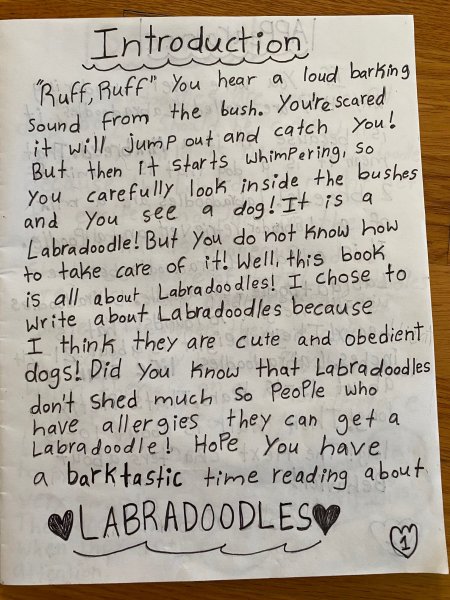 Introduction
"Ruff, Ruff" You hear a loud barking
sound from the bush. You're scared
it will jump out and catch you!
But then it starts whimpering, so
you carefully look inside the bushes
and you see a dog! It is a
Labradoodle! But you do not know how
to take care of it! Well, this book
is all about Labradoodles! I chose to
write about Labradoodles because
I think they are cute and obedient
dogs! Did you know that Labradoodles
don't shed much so people who
have allergies they can get a
Labradoodle! Hope you have
a barktastic time reading about
LABRADOODLES
1